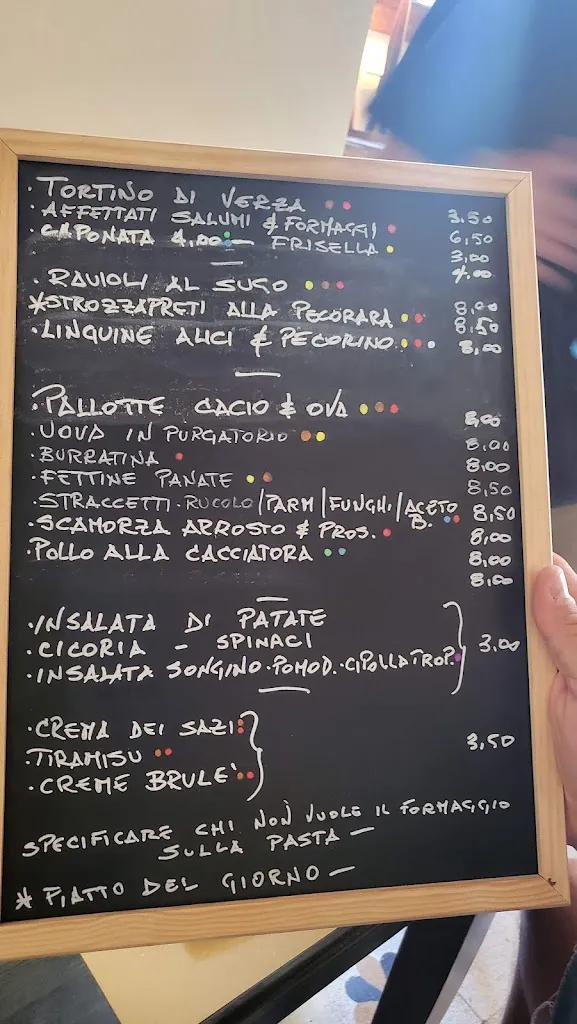 · TORTINO DI VERZA 3,50
· AFFETTATI SALUMI & FORMAGGI 6,50
· CAPONATA 4,00 — FRISELLA 3,00
4,00
· RAVIOLI AL SUGO 8,00
*STROZZAPRETI ALLA PECORARA 8,50
· LINGUINE ALICI & PECORINO 8,00
· PALLOTTE CACIO & OVA 8,00
· UOVA IN PURGATORIO 8,00
· BURRATINA 8,00
· FETTINE PANATE 8,50
· STRACCETTI · RUCOLO/PARM/FUNGHI/ACETO B. 8,50
· SCAMORZA ARROSTO & PROS. 8,00
· POLLO ALLA CACCIATORA 8,00
8,00
· INSALATA DI PATATE
· CICORIA - SPINACI 3,00
· INSALATA SONGINO · POMOD. · CIPOLLA TROP.
· CREMA DEI SAZI
· TIRAMISU 3,50
· CREME BRULE'
SPECIFICARE CHI NON VUOLE IL FORMAGGIO
SULLA PASTA —
* PIATTO DEL GIORNO —